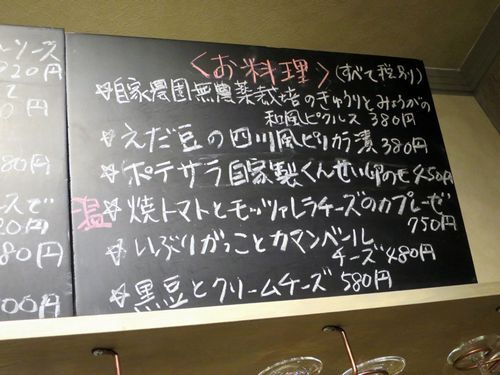 ーソース
920円
て
0円
80円
ースで
20円
80円
00円
<お料理>(すべて税別)
☆自家農園無農薬栽培のきゅうりとみょうがの
和風ピクルス 380円
☆えだ豆の四川風ピリカラ漬380円
☆ポテサラ自家製くんせい卵のせ450円
温☆焼トマトとモッツァレラチーズのカプレーゼ
750円
☆いぶりがっことカマンベール
チーズ480円
☆黒豆とクリームチーズ 580円